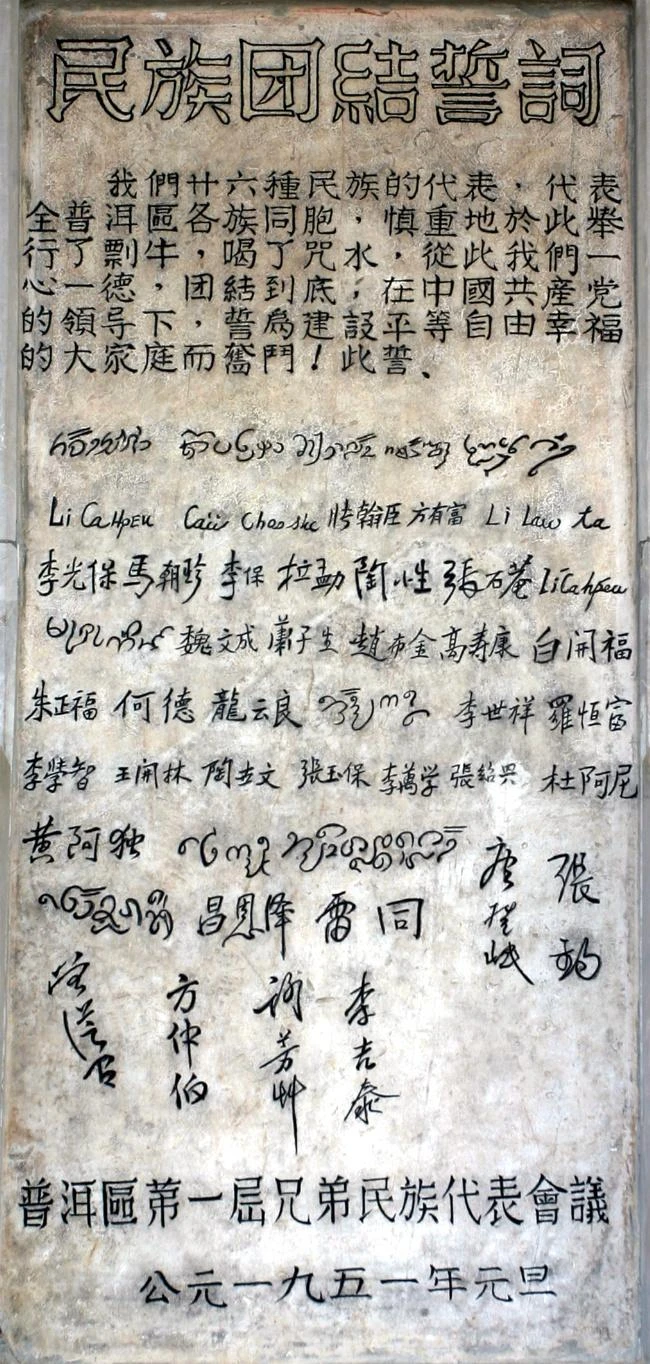 民族团結誓詞
我們廿六種民族的代表,代表
全普洱區各族同胞,慎重地於此舉
行了剽牛,喝了咒水,從此我們一
心一德,团結到底,在中國共產党
的領导下,誓為建設平等自由幸福
的大家庭而奮鬥!此誓、
Li CaHpeu 方有富 Li Law ta
李光保 馬朝珍 李保 拉勐 陶小性 張石菴 Li Cahpeu
魏文成 蕭子生 趙布金 高壽康 白開福
朱正福 何德 龍云良 李世祥 羅恒富
李學智 王開林 陶世文 張玉保 李萬学 張紹興 杜阿尼
黄阿独 唐登岷 張鈞
昌恩泽 雷同
方仲伯 謝芳艸 李吉泰
普洱區第一屆兄弟民族代表會議
公元一九五一年元旦